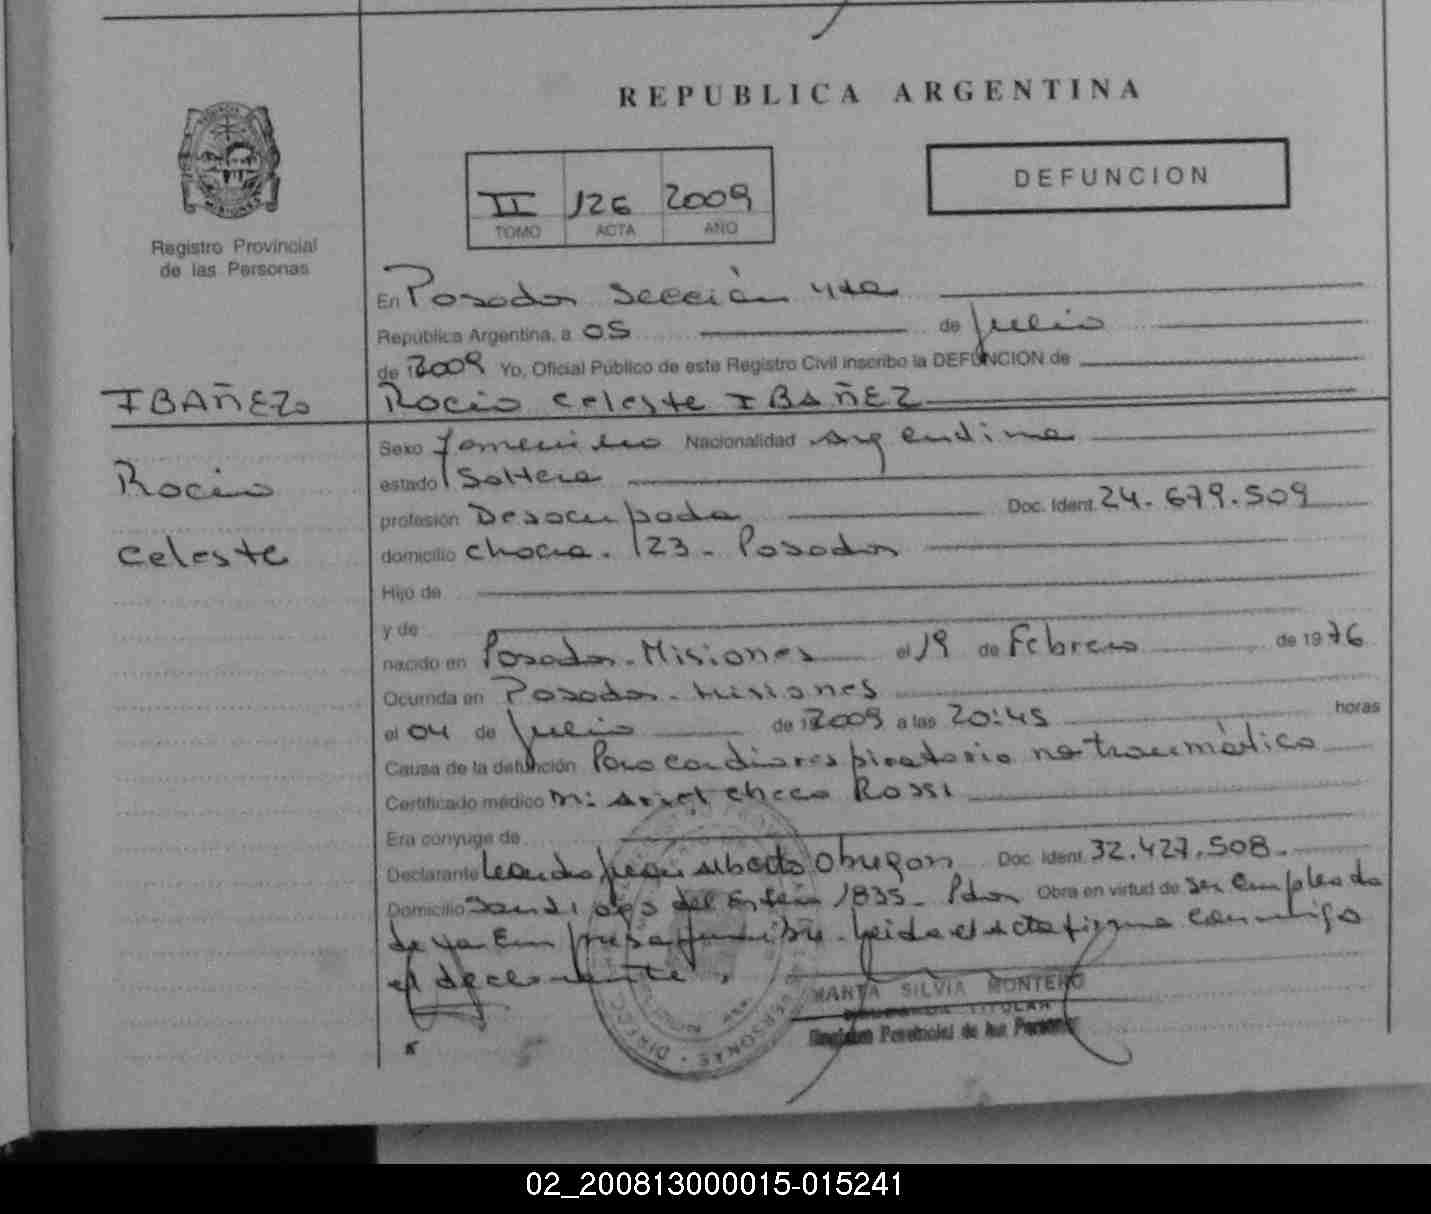 REPUBLICA ARGENTINA
II 126 2009
TOMO ACTA AÑO
DEFUNCION
Registro Provincial
de las Personas
En Posadas Sección 4ta
República Argentina, a 05 de Julio
de 2009 Yo, Oficial Público de este Registro Civil inscribo la DEFUNCION de
IBAÑEZ
Rocio Celeste IBAÑEZ
Rocio
Celeste
Sexo Femenino Nacionalidad Argentina
estado Soltera
profesión Desocupada Doc. Ident. 24.679.509
domicilio Chacra. 123 - Posadas
Hijo de
y de
nacido en Posadas - Misiones el 19 de Febrero de 1976
Ocurrida en Posadas - Misiones
el 04 de Julio de 2009 a las 20:45 horas
Causa de la defunción Paro cardiorespiratorio no traumático
Certificado médico Checo Rossi
Era conyuge de
Declarante Leandro Alberto Obregon Doc. Ident. 32.427.508.-
Domicilio Santiago del Estero 1835 - Pdas Obra en virtud de ser empleado
de la Empresa fúnebre. Leida el acta firma conmigo
el declarante.
MARTA SILVIA MONTERO
TITULAR
Registro Provincial de las Personas
PERSONAS - DIRECC
02_200813000015-015241